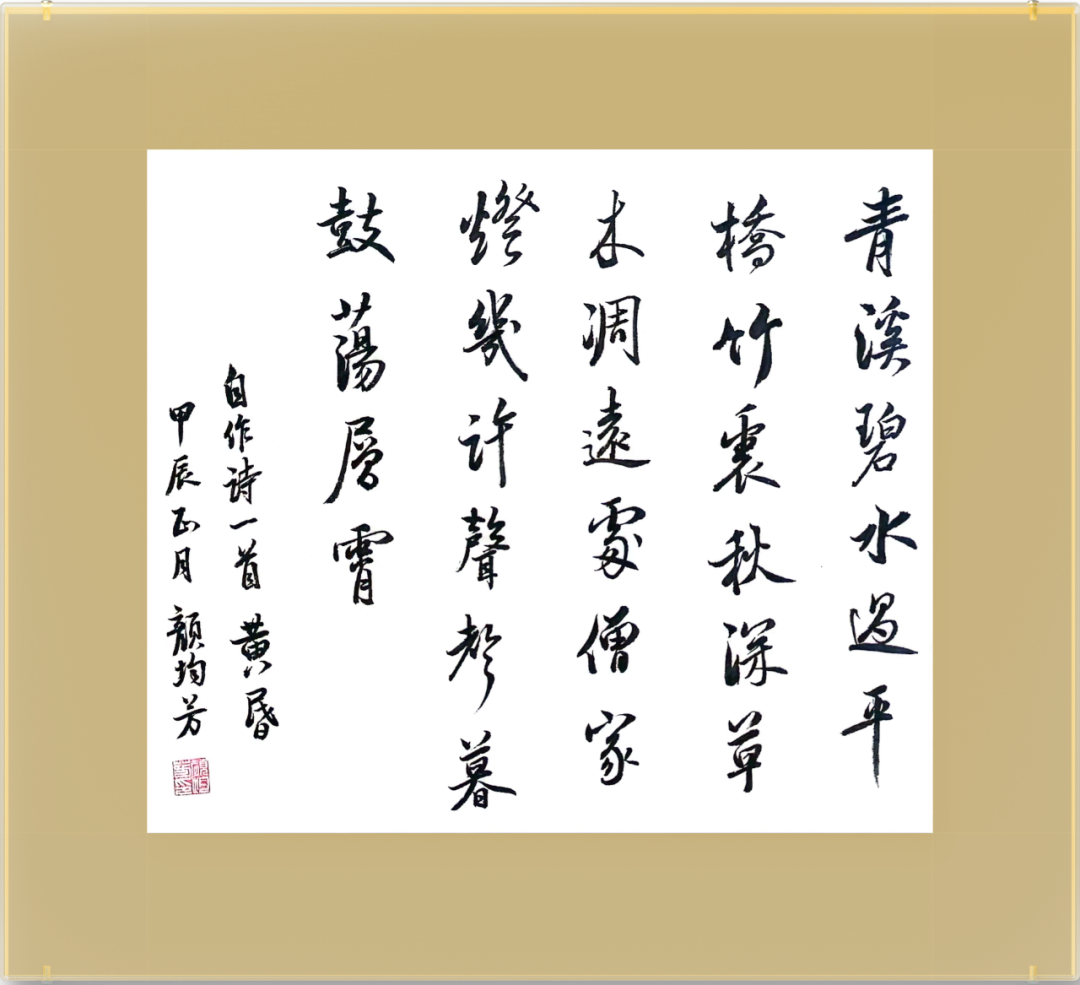 青溪碧水過平
橋竹裏秋深草
木凋遠處僧家
燈幾許聲聲暮
鼓蕩層霄
自作诗一首 黄昏
甲辰正月 顏均芳